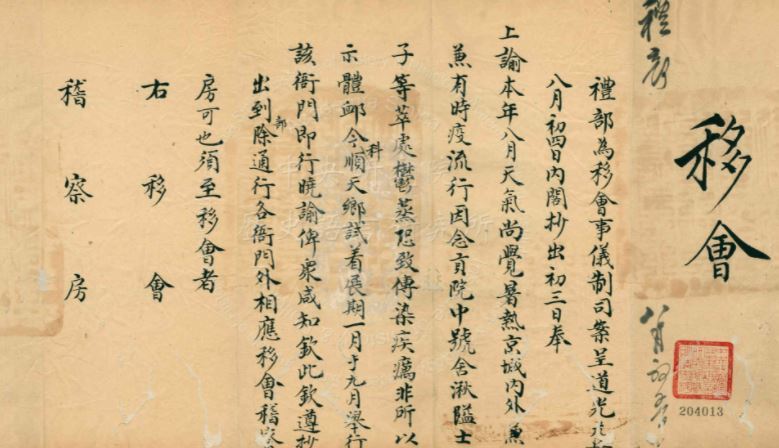 移會
204013
禮部
禮部為移會事儀制司案呈道光
八月初四日內閣抄出初三日奉
上諭本年八月天氣尚覺暑熱京城內外
兼有時疫流行因念貢院中號舍湫隘士
子等萃處鬱蒸恐致傳染疾癘非所以
示體卹今科順天鄉試着展期一月于九月舉行
該衙門即行曉諭俾衆咸知欽此欽遵抄
出到部除通行各衙門外相應移會稽察
房可也須至移會者
右移會
稽察房